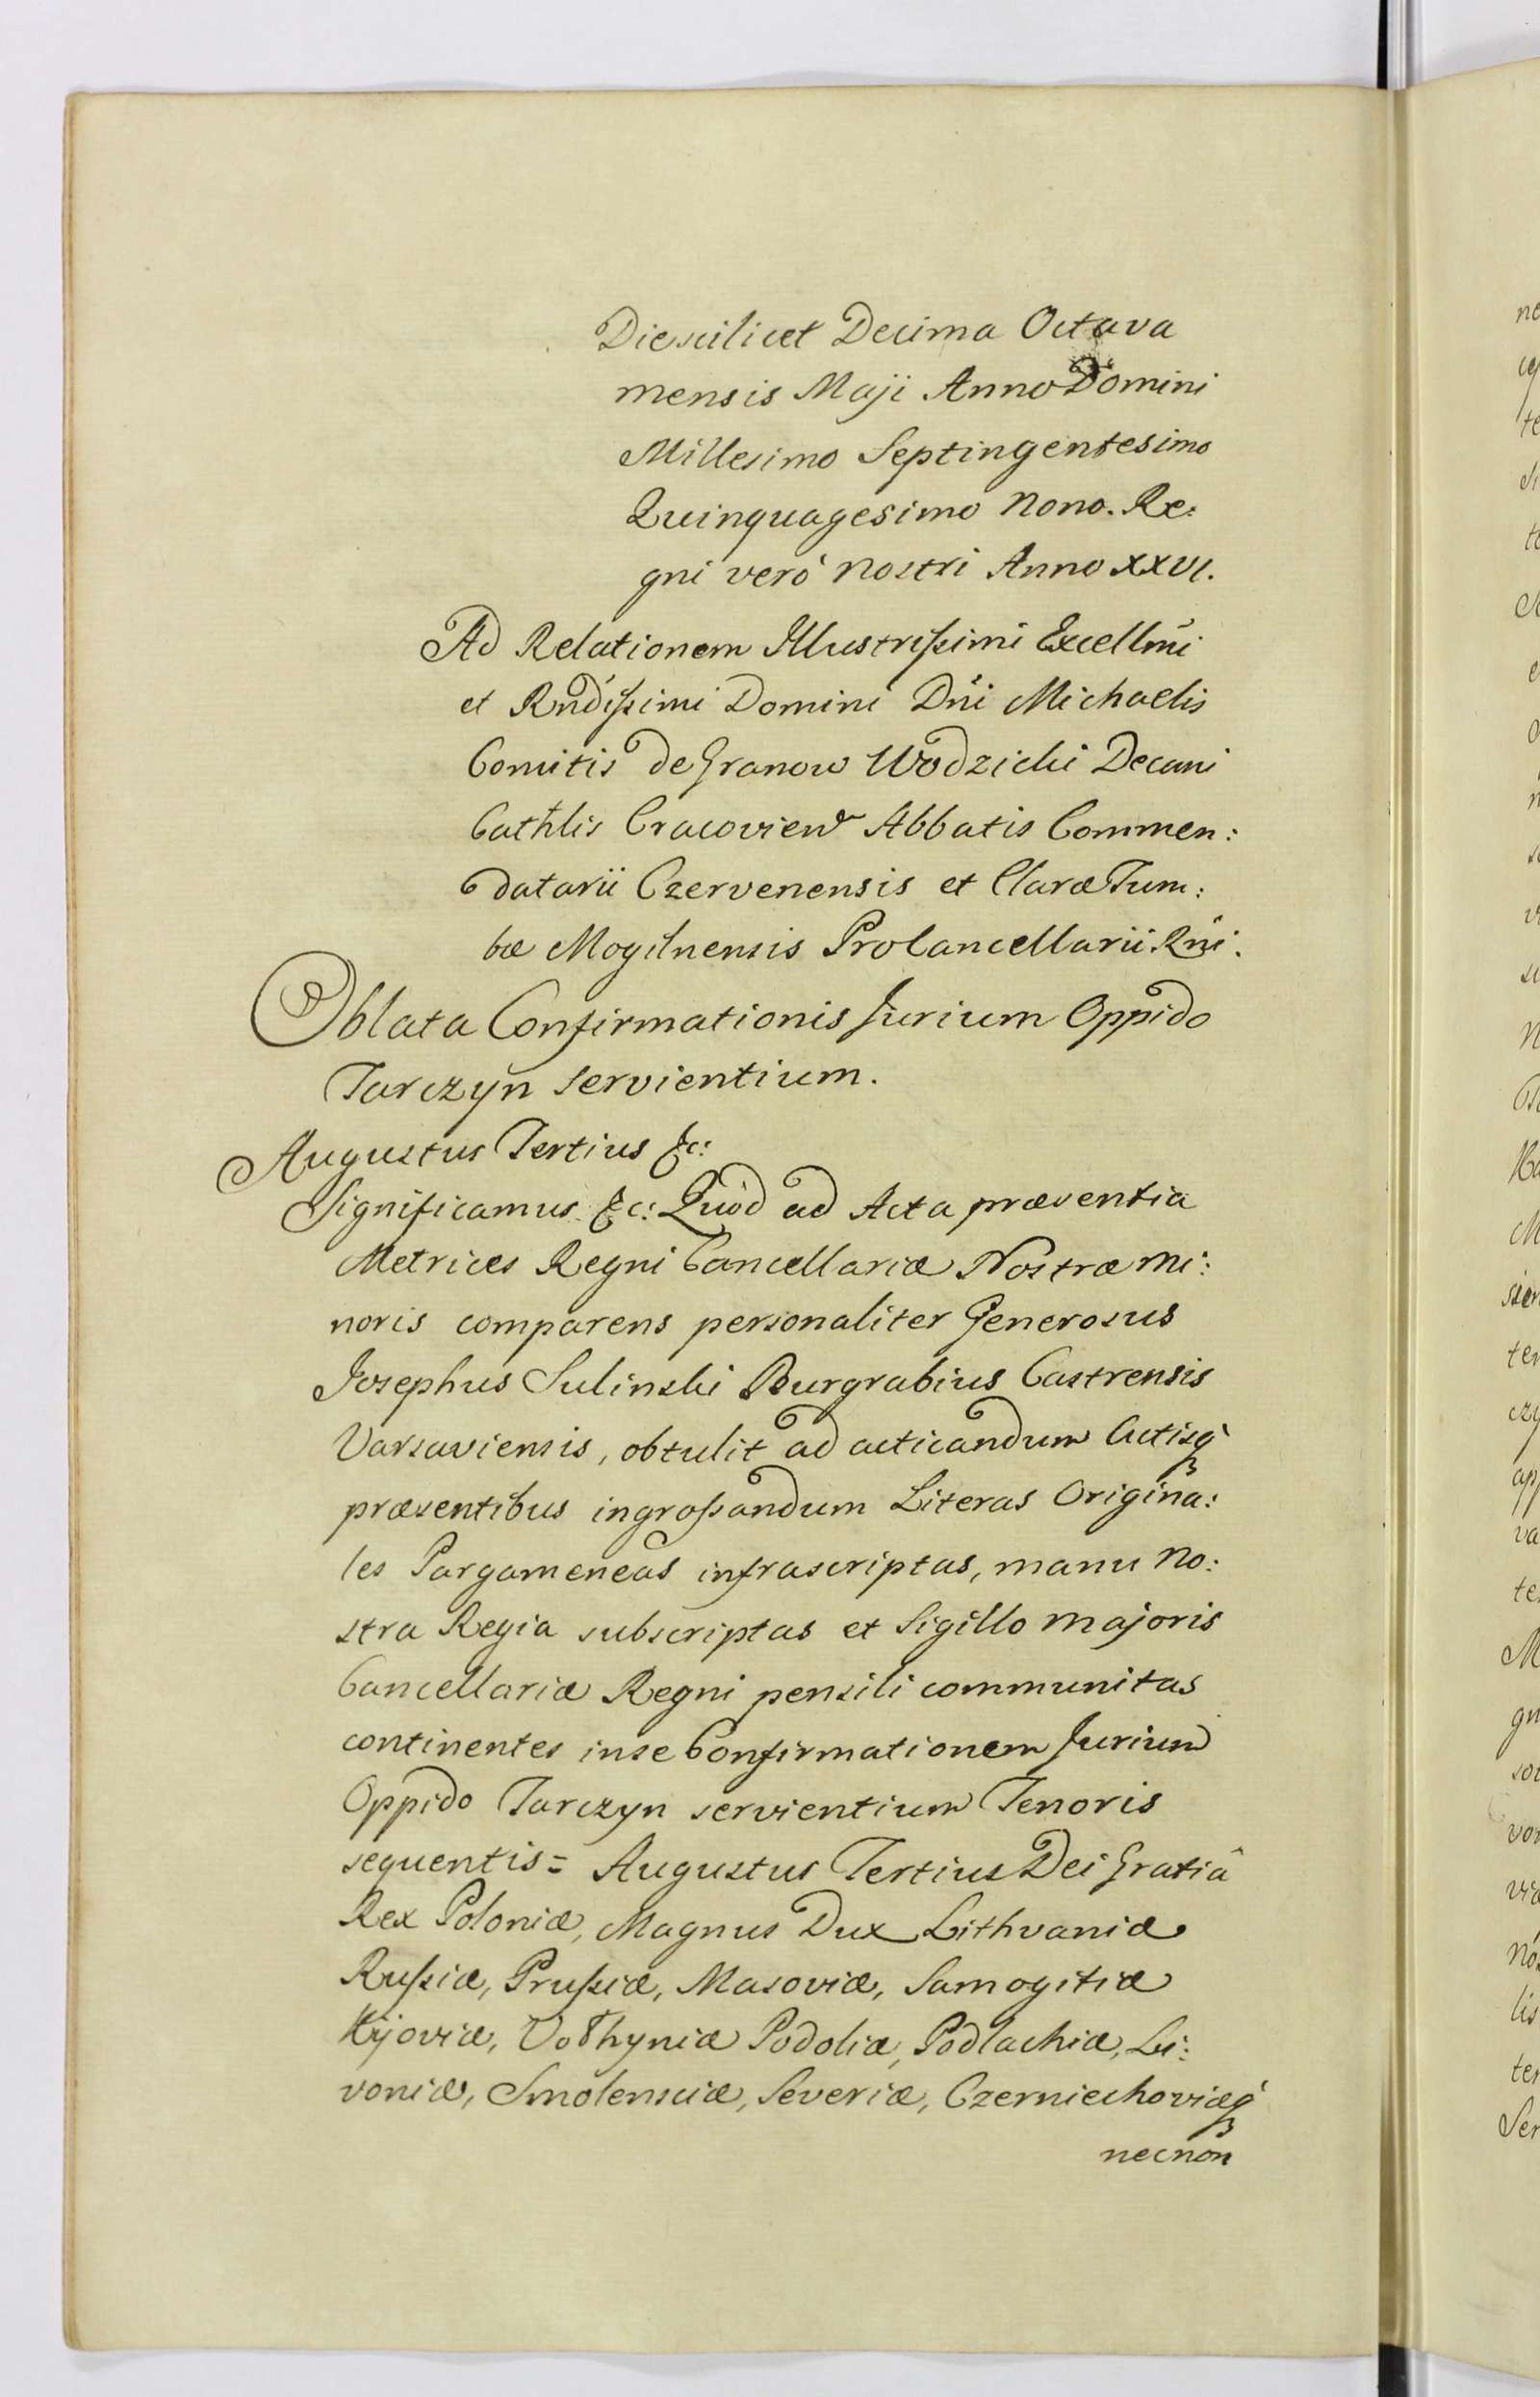 Die scilicet Decima Octava
mensis Maji Anno Domini
Millesimo Septingentesimo
Quinquagesimo Nono. Re:
gni verò Nostri Anno XXVI.
Ad Relationem Illustrissimi Excellmi
et Rndissimi Domini Dni Michaelis
Comitis de Granow Wodzicki Decani
Cathlis Cracovien Abbatis Commen:
datarii Czervenensis et Claræ Tum:
bæ Mogilnensis Procancellarii Rni.
Oblata Confirmationis Jurium Oppido
Tarczyn servientium.
Augustus Tertius &c:
Significamus &c: Quòd ad Acta præsentia
Metrices Regni Cancellariæ Nostræ mi:
noris comparens personaliter Generosus
Josephus Sulinski Burgrabius Castrensis
Varsaviensis, obtulit ad acticandum Actisq
præsentibus ingrossandum Literas Origina:
les Pargameneas infrascriptas, manu No:
stra Regia subscriptas et Sigillo majoris
Cancellariæ Regni pensili communitas
continentes in se Confirmationem Jurium
Oppido Tarczyn servientium Tenoris
sequentis = Augustus Tertius Dei Gratiâ
Rex Poloniæ, Magnus Dux Lithvaniæ
Russiæ, Prussiæ, Masoviæ, Samogitiæ
Kijoviæ, Volhyniæ Podoliæ, Podlachiæ, Li:
voniæ, Smolensciæ, Severiæ, Czerniechoviæq
necnon